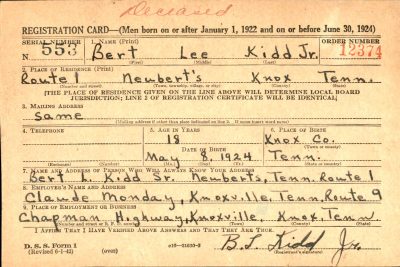 Deceased
REGISTRATION CARD—(Men born on or after January 1, 1922 and on or before June 30, 1924)
SERIAL NUMBER 1. NAME (Print) ORDER NUMBER
N 553 Bert Lee Kidd Jr. 12374
(First) (Middle) (Last)
2. PLACE OF RESIDENCE (Print)
Route 1 Neubert's Knox Tenn.
(Number and street) (Town, township, village, or city) (County) (State)
[THE PLACE OF RESIDENCE GIVEN ON THE LINE ABOVE WILL DETERMINE LOCAL BOARD
JURISDICTION; LINE 2 OF REGISTRATION CERTIFICATE WILL BE IDENTICAL]
3. MAILING ADDRESS
Same
(Mailing address if other than place indicated on line 2. If same insert word same)
4. TELEPHONE 5. AGE IN YEARS 6. PLACE OF BIRTH
18 Knox Co.
DATE OF BIRTH (Town or county)
May 8, 1924 Tenn.
(Exchange) (Number) (Mo.) (Day) (Yr.) (State or country)
7. NAME AND ADDRESS OF PERSON WHO WILL ALWAYS KNOW YOUR ADDRESS
Bert L. Kidd Sr. Neuberts, Tenn. Route 1
8. EMPLOYER'S NAME AND ADDRESS
Claude Monday, Knoxville, Tenn. Route 9
9. PLACE OF EMPLOYMENT OR BUSINESS
Chapman Highway, Knoxville, Knox, Tenn.
(Number and street or R. F. D. number) (Town) (County) (State)
I AFFIRM THAT I HAVE VERIFIED ABOVE ANSWERS AND THAT THEY ARE TRUE.
D. S. S. Form 1
(Revised 6-1-42) (over) B. L. Kidd Jr.
(Registrant's signature)